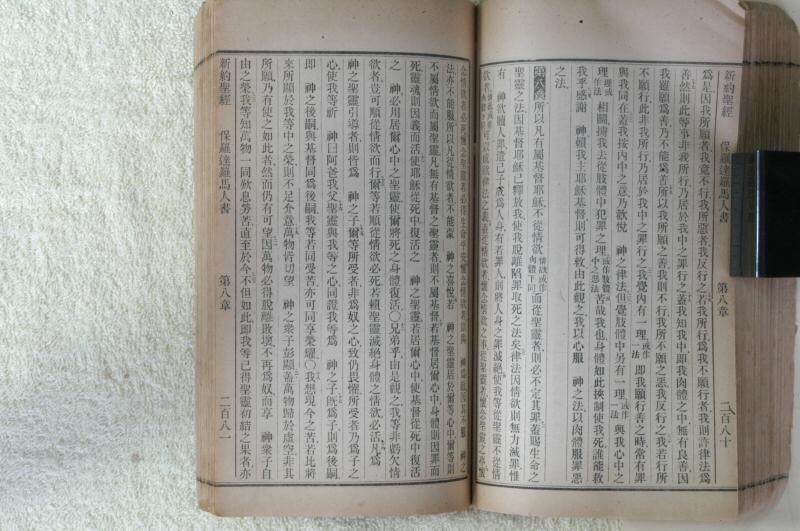 新約聖經 保羅達羅馬人書 第八章 二百八十
爲是因我所願者我竟不行我所惡者我反行之若我所行爲我不願行者則我許律法爲
善然則此等事非我所行乃居於我中之罪行之蓋我知我中即我肉體之中無有良善因
我雖願爲善乃不能爲善所以我所願之善我則不行我所不願之惡我反行之若我行所
不願行此非我所行乃居於我中之罪行之我覺內有一理或作一法即我願行善之時常有罪
與我同在蓋我按內中之意乃歡悅 神之律法但覺肢體中另有一理或作一法與我心中之
理或作法相鬬擄我去從肢體中犯罪之理或作服肢體中之惡法苦哉我也身體如此挾制使我死誰能救
我乎感謝 神賴我主耶穌基督則可得救由此觀之我以心服 神之法以肉體服罪惡
之法
第八章 所以凡有屬基督耶穌不從情欲情欲或作肉體下同而從聖靈者則必不定其罪蓋賜生命之
聖靈之法因基督耶穌已釋放我使我脫離陷罪取死之法矣律法因情欲則無力滅罪惟
有 神欲贖人罪遣己子成爲人身有若罪人則將人身之罪滅絕使我等從聖靈不從情
欲者可以成就律法之義蓋從情欲者
新約聖經 保羅達羅馬人書 第八章 二百八一
法亦不能服所以凡從情欲者不能蒙 神之喜悅若 神之聖靈居於爾等心中爾等則
不屬情欲而屬聖靈凡無有基督之聖靈者則不屬基督若基督居爾心中身體則因罪而
死靈魂則因義而活使耶穌從死中復活之 神之聖靈若居爾心中使基督從死中復活
之 神必用居爾心中之聖靈使爾將死之身體復活〇兄弟乎由是觀之我等非虧欠情
欲者豈可順從情欲而行爾等若順從情欲必死若賴聖靈滅絕身體之情欲必活凡爲
神之聖靈引導者則皆爲 神之子爾等所受者非爲奴之心致仍畏懼所受者乃爲子之
心使我等祈 神曰阿爸我父聖靈與我等之心同證我等爲 神之子既爲子則爲後嗣
即 神之後嗣與基督同爲後嗣我等若同受苦亦可同享榮耀〇我想現今之苦若比將
來所顯於我等中之榮則不足介意萬物皆切望 神之衆子彰顯蓋萬物歸於虛空非其
所願乃有使之如此者然而仍有可望因萬物必得脫離敗壞不再爲奴而享 神衆子自
由之榮我等知萬物一同歎息勞苦直至於今不但如此即我等已得聖靈初結之果者亦